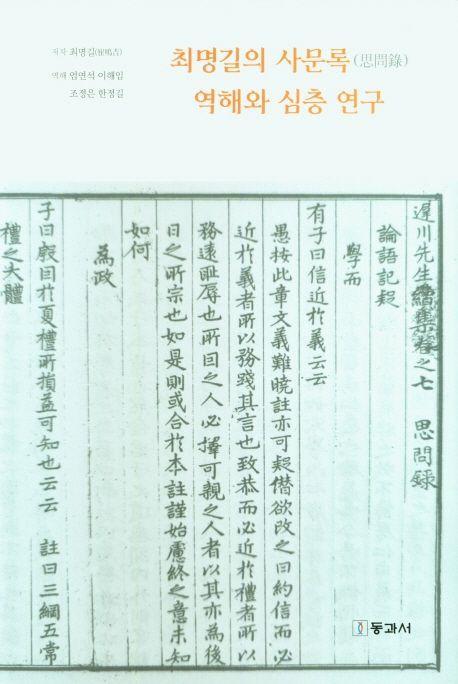 저자 최명길(崔鳴吉)
역해 엄연석 이해임
조정은 한정길
최명길의 사문록(思問錄)
역해와 심층 연구
遲川先生續集卷之七 思問錄
論語記疑
學而
有子曰信近於義云云
愚按此章文義難曉註亦可疑僭欲改之曰約信而必
近於義者所以務踐其言也致恭而必近於禮者所以
務遠恥辱也所因之人必擇可親之人者以其亦為後
日之所宗也如是則或合於本註謹始慮終之意未知
如何
為政
子曰殷因於夏禮所損益可知也云云 註曰三綱五常
禮之大體
동과서